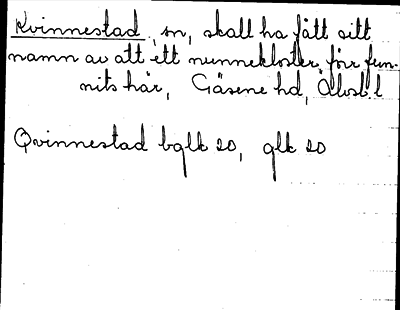 Kvinnestad, sn, skall ha fått sitt
namn av att ett nunnekloster förr fun-
nits här, Gäsene hd, Älvsb. l
Qvinnestad bglk 20, glk 20